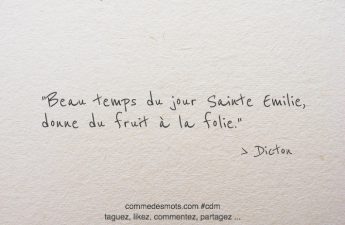 "Beau temps du jour Sainte Emilie,
donne du fruit à la folie."
> Dicton
commedesmots.com #cdm
taguez, likez, commentez, partagez ...